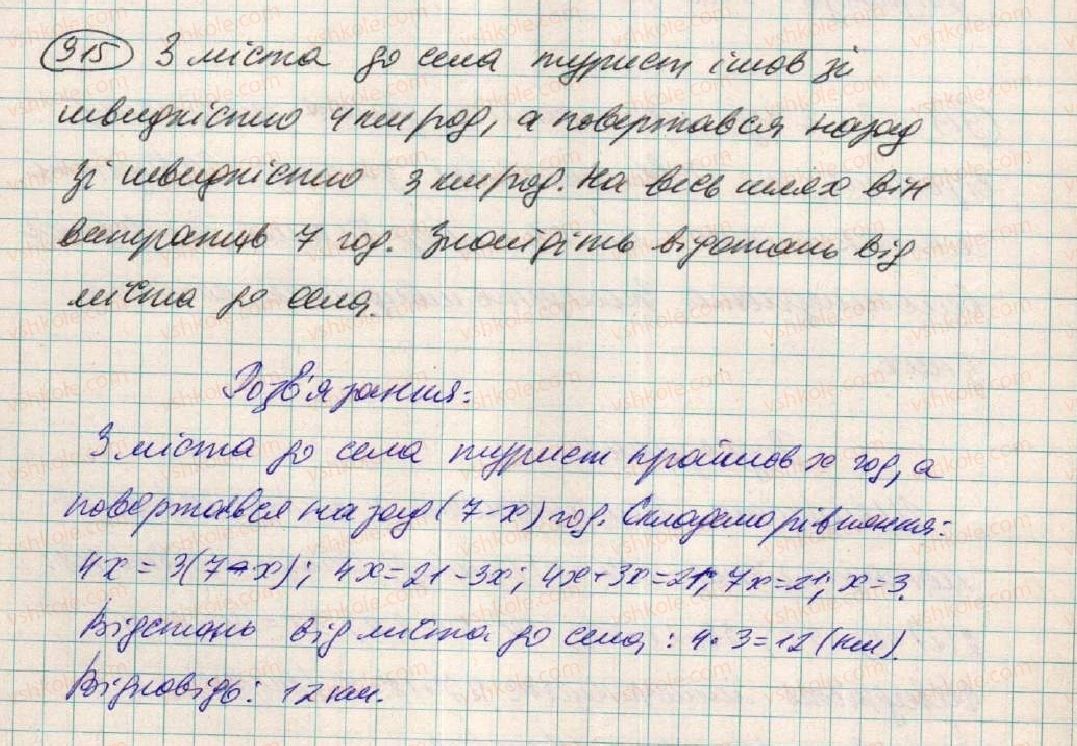 315 З міста до села турист ішов зі
швидкістю 4 км/год, а повертався назад
зі швидкістю 3 км/год. На весь шлях він
витратив 7 год. Знайдіть відстань від
міста до села.
Розв'язання:
З міста до села турист пройшов x год, а
повертався назад (7-x) год. Складемо рівняння:
4x = 3(7-x); 4x=21-3x; 4x+3x=21; 7x=21; x=3.
Відстань від міста до села: 4·3=12 (км).
Відповідь: 12 км.